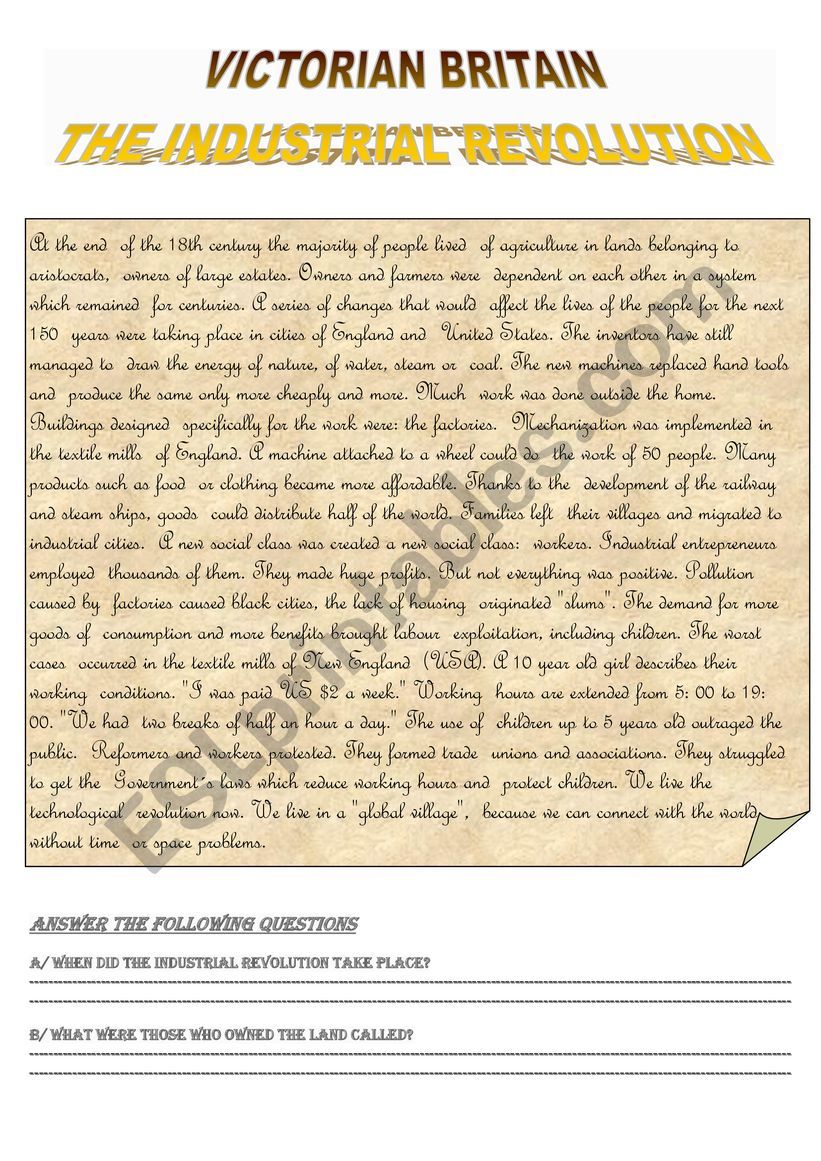 VICTORIAN BRITAIN
THE INDUSTRIAL REVOLUTION
At the end of the 18th century the majority of people lived of agriculture in lands belonging to
aristocrats, owners of large estates. Owners and farmers were dependent on each other in a system
which remained for centuries. A series of changes that would affect the lives of the people for the next
150 years were taking place in cities of England and United States. The inventors have still
managed to draw the energy of nature, of water, steam or coal. The new machines replaced hand tools
and produce the same only more cheaply and more. Much work was done outside the home.
Buildings designed specifically for the work were: the factories. Mechanization was implemented in
the textile mills of England. A machine attached to a wheel could do the work of 50 people. Many
products such as food or clothing became more affordable. Thanks to the development of the railway
and steam ships, goods could distribute half of the world. Families left their villages and migrated to
industrial cities. A new social class was created a new social class: workers. Industrial entrepreneurs
employed thousands of them. They made huge profits. But not everything was positive. Pollution
caused by factories caused black cities, the lack of housing originated "slums". The demand for more
goods of consumption and more benefits brought labour exploitation, including children. The worst
cases occurred in the textile mills of New England (USA). A 10 year old girl describes their
working conditions. "I was paid US $2 a week." Working hours are extended from 5: 00 to 19:
00. "We had two breaks of half an hour a day." The use of children up to 5 years old outraged the
public. Reformers and workers protested. They formed trade unions and associations. They struggled
to get the Government´s laws which reduce working hours and protect children. We live the
technological revolution now. We live in a "global village", because we can connect with the world
without time or space problems.
ANSWER THE FOLLOWING QUESTIONS
A/ WHEN DID THE INDUSTRIAL REVOLUTION TAKE PLACE?
B/ WHAT WERE THOSE WHO OWNED THE LAND CALLED?
ESLprintables.com